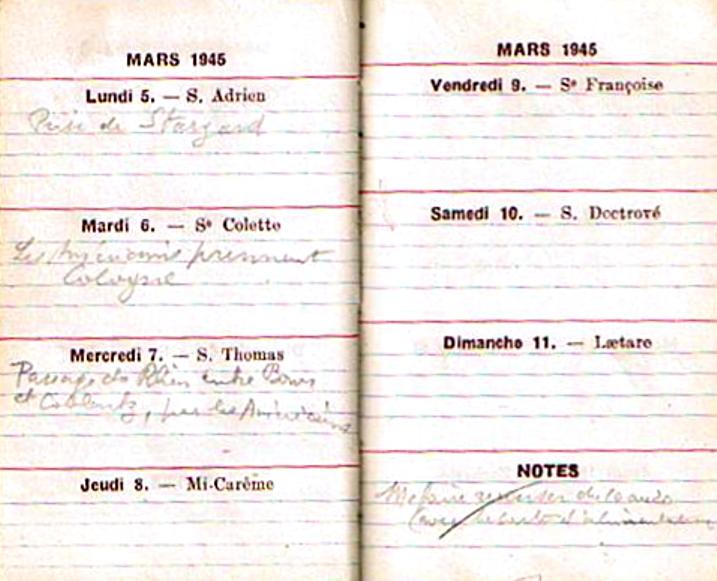 MARS 1945
Lundi 5. — S. Adrien
Prise de Stargard
Mardi 6. — Se Colette
Les Américains prennent
Cologne
Mercredi 7. — S. Thomas
Passage du Rhin entre Bonn
et Coblentz, par les Américains
Jeudi 8. — Mi-Carême
MARS 1945
Vendredi 9. — Se Françoise
Samedi 10. — S. Doctrové
Dimanche 11. — Lætare
NOTES
Me faire
carte d'alimentation